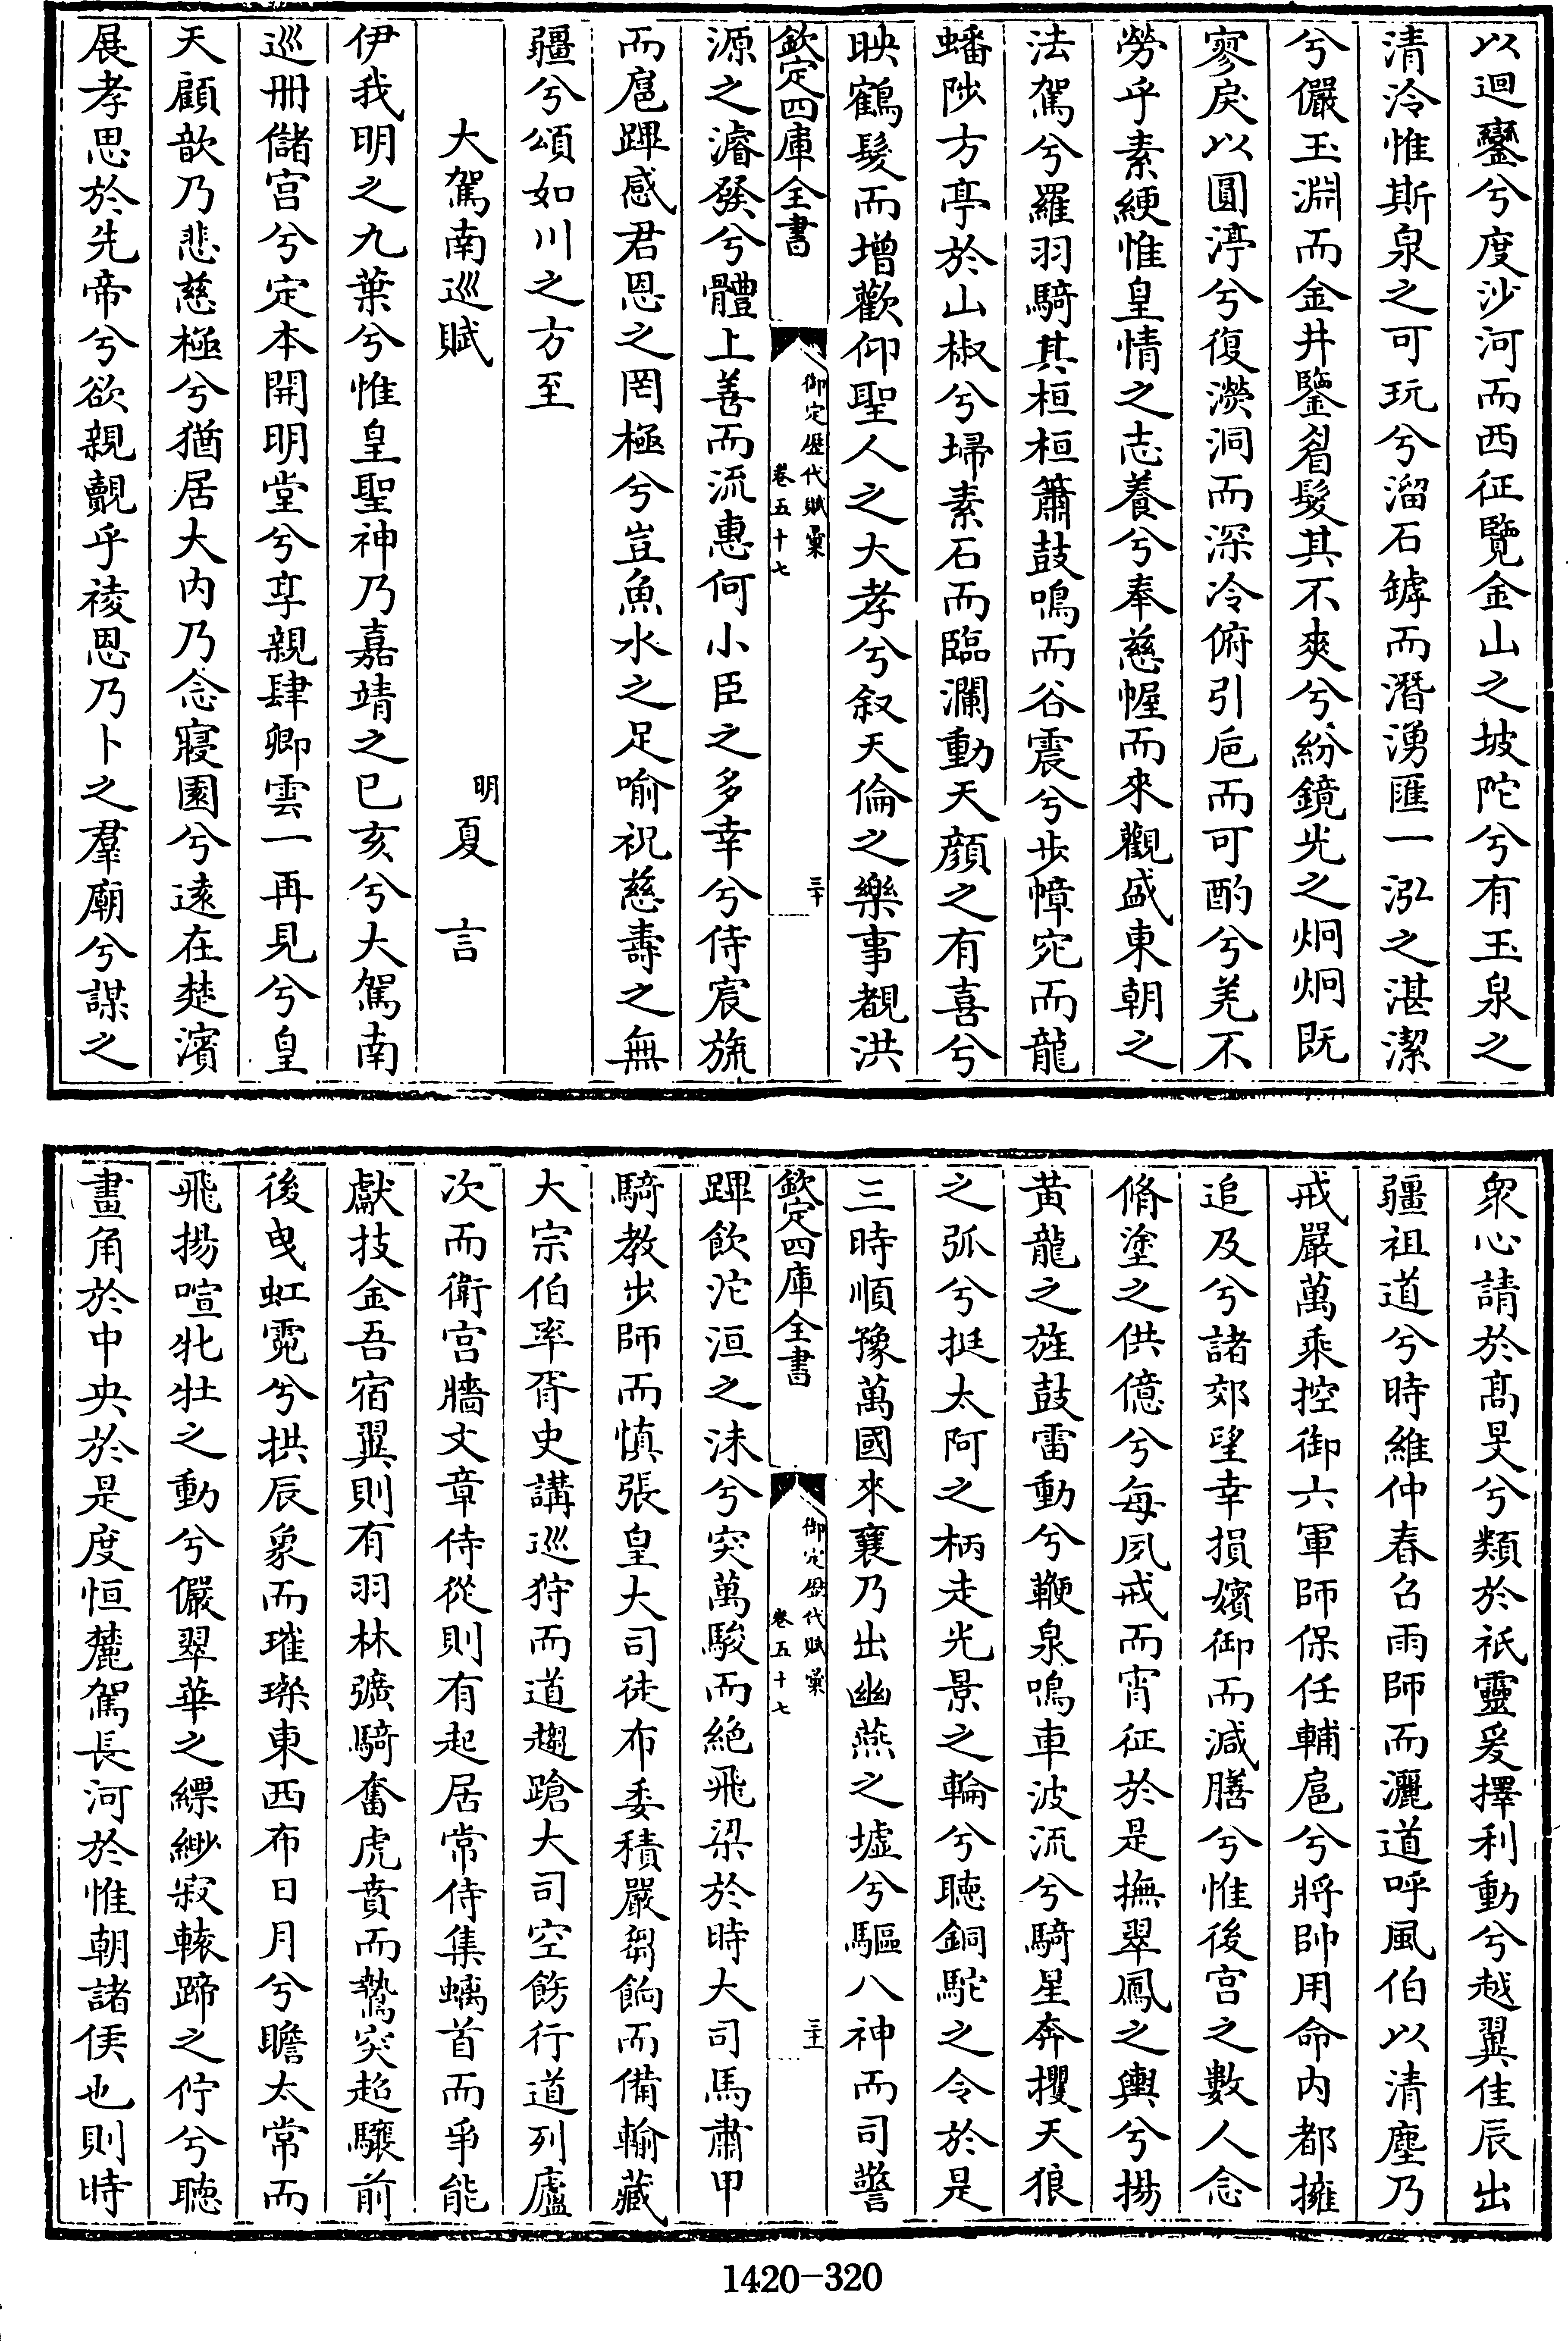 以迴鑾兮度沙河而西征覽金山之坡陀兮有玉泉之
清泠惟斯泉之可玩兮溜石罅而潛湧匯一泓之湛潔
兮儼玉淵而金井鑒眉髮其不爽兮紛鏡光之炯炯既
寥戾以圓渟兮復濙洞而深冷俯引巵而可酌兮羌不
勞乎素綆惟皇情之志養兮奉慈幄而來觀盛東朝之
法駕兮羅羽騎其桓桓簫鼓鳴而谷震兮步幛宛而龍
蟠陟方亭於山椒兮埽素石而臨瀾動天顔之有喜兮
映鶴髮而增歡仰聖人之大孝兮叙天倫之樂事覩洪
欽定四庫全書
御定歴代賦彙
卷五十七
三十
源之濬發兮體上善而流惠何小臣之多幸兮侍宸旒
而扈蹕感君恩之罔極兮豈魚水之足喻祝慈壽之無
疆兮頌如川之方至
大駕南巡賦
明夏言
伊我明之九葉兮惟皇聖神乃嘉靖之已亥兮大駕南
巡冊儲宮兮定本開明堂兮享親肆卿雲一再見兮皇
天顧歆乃悲慈極兮猶居大内乃念寢園兮遠在楚濱
展孝思於先帝兮欲親覿乎祾恩乃卜之羣廟兮謀之
衆心請於髙旻兮類於祇靈爰擇利動兮越翼佳辰出
疆祖道兮時維仲春召雨師而灑道呼風伯以清塵乃
戒嚴萬乘控御六軍師保任輔扈兮將帥用命内都擁
追及兮諸郊望幸損嬪御而減膳兮惟後宮之數人念
脩塗之供億兮每夙戒而宵征於是撫翠鳳之輿兮揚
黄龍之旌鼓雷動兮鞭泉鳴車波流兮騎星奔攫天狼
之弧兮挺太阿之柄走光景之輪兮聴銅駝之令於是
三時順豫萬國來襄乃出幽燕之墟兮驅八神而司警
欽定四庫全書
御定歴代賦彙
卷五十七
三十一
蹕飲沱洹之沬兮突萬駿而絶飛梁於時大司馬肅甲
騎教步師而慎張皇大司徒布委積嚴芻餉而備輸藏
大宗伯率胥史講巡狩而道趨蹌大司空飭行道列廬
次而衛宮牆文章侍從則有起居常侍集螭首而爭能
獻技金吾宿翼則有羽林彍騎奮虎賁而鷙突超驤前
後曳虹霓兮拱辰象而璀璨東西布日月兮瞻太常而
飛揚喧牝牡之動兮儼翠華之縹緲寂轅蹄之佇兮聴
畫角於中央於是度恒麓駕長河於惟朝諸侯也則時
1420-320